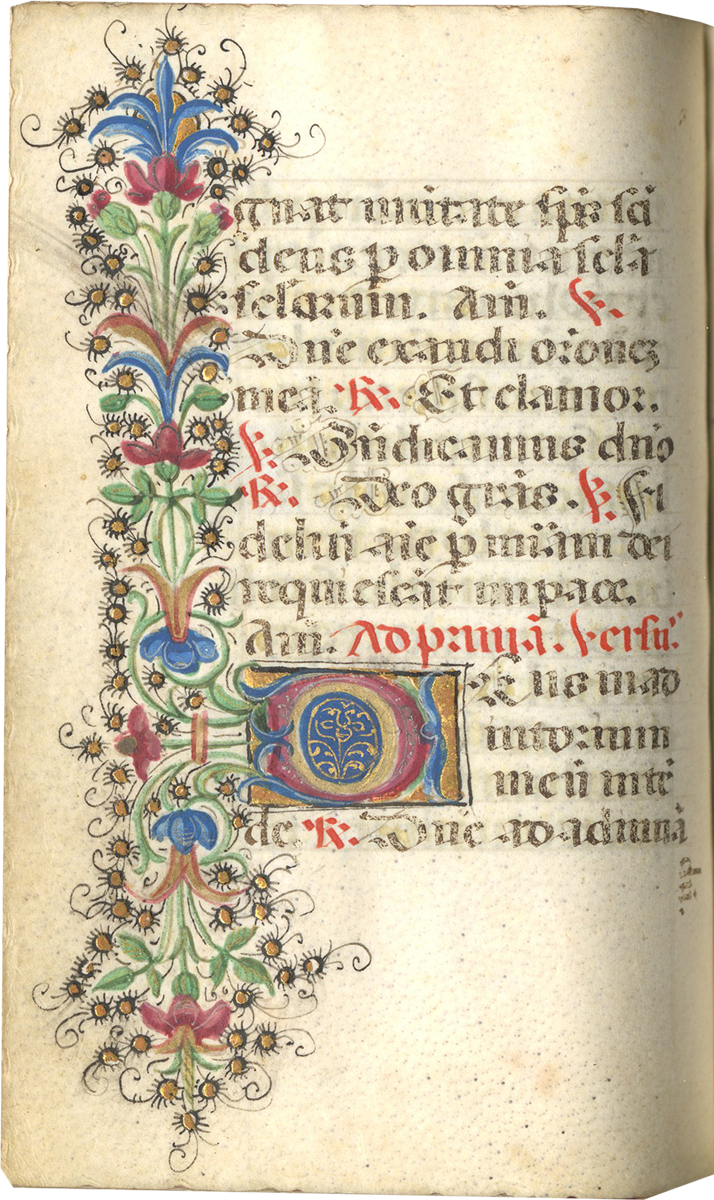 gnat unitate sp̄s sc̄i
deus ꝑ omnia seclā
seclorum. Am̄. ℣.
Dn̄e exaudi or̄onez
meā. ℟. Et clamor.
℣. Bn̄dicamus dn̄o
℟. Deo gr̄as. ℣. Fi
deliū aīe ꝑ mīam dei
requiescāt in pace.
Am̄. Ad primā. Versu.
DEus in ad
iutorium
meū intē
de. ℟. Dn̄e ad adiuuā